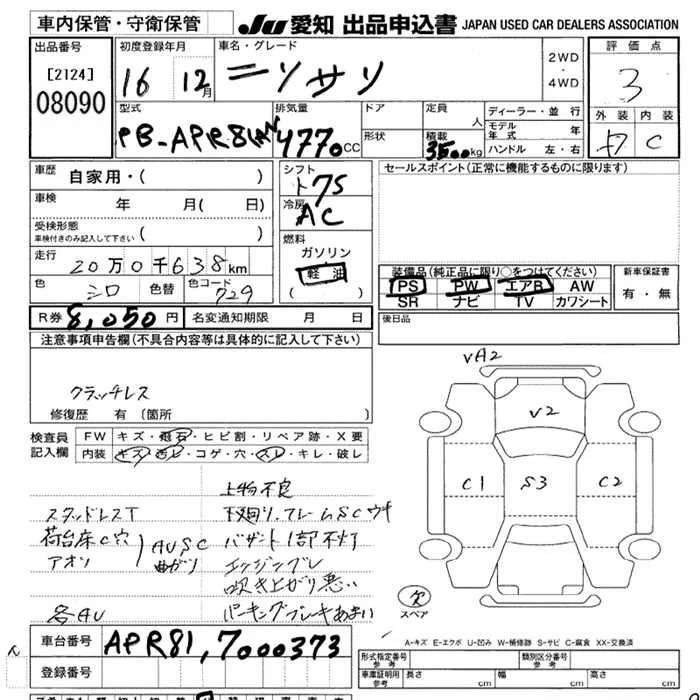 車内保管・守衛保管 JU 愛知 出品申込書 JAPAN USED CAR DEALERS ASSOCIATION
出品番号
[2124]
08090
初度登録年月
16 12月
車名・グレード
ニツサリ
2WD
・
4WD
評価点
3
外装 内装
C
型式
PB-APR81
排気量
4770CC
ドア
形状
定員
人
積載
3500kg
ディーラー・並行
モデル年式 年
ハンドル 左・右
車歴
自家用・( )
車検 年 月( 日)
受検形態
車検付きのみ記入して下さい ( )
走行
20万0千638km
色 シロ 色替 色コード 729
R券 8,050円 名変通知期限 月 日
シフト
75
冷房
AC
燃料
ガソリン
軽油
( )
セールスポイント(正常に機能するものに限ります)
装備品(純正品に限り○をつけてください)
PS PW エアB AW
SR ナビ TV カワシート
新車保証書
有・無
後日品
注意事項申告欄(不具合内容等は具体的に記入して下さい)
クラッチレス
修復歴 有 (箇所 )
検査員記入欄
FW キズ・飛石・ヒビ割・リペア跡・X要
内装 キズ・汚レ・コゲ・穴・スレ・キレ・破レ
上物不良
スタッドレスT
下廻り、フレームSCウキ
荷台床C穴
アオリ
AUSC
曲ガリ
1部不灯
エンジンブレ
吹き上がり悪い
各AU
パーキングブレーキあまい
車台番号 APR81,7000373
登録番号
VA2
V2
C1
S3
C2
欠
スペア
A-キズ E-エクボ U-凹み W-補修跡 S-サビ C-腐食 XX-交換済
形式指定番号
参考
類別区分番号
参考
車庫証明用
参考
長さ cm 幅 cm 高さ cm